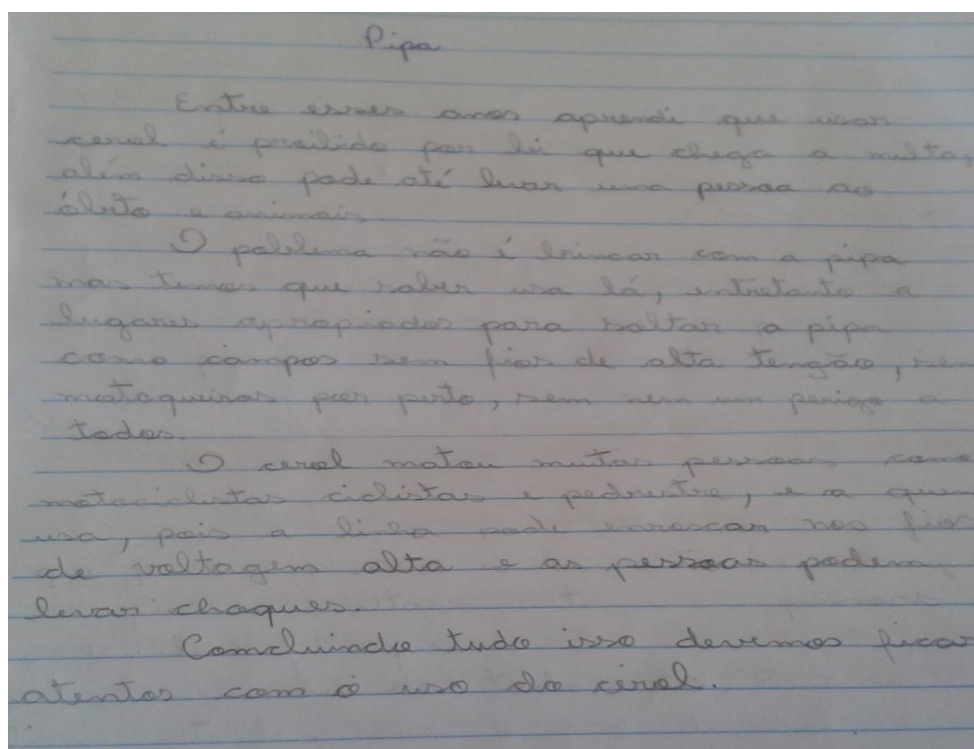 Pipa
Entre esses anos aprendi que usar
cerol é proibido por lei que chega a multa,
além disso pode até levar uma pessoa ao
óbito e animais
O poblema não é brincar com a pipa
mas temos que saber usa lá, entretanto a
lugares apropiados para soltar a pipa
como campos sem fios de alta tengão, sem
motoqueiros por perto, sem nem um perigo a
todos.
O cerol matou muitas pessoas como
motociclistas ciclistas e pedrestre, e a quem
usa, pois a linha pode enroscar nos fios
de voltagem alta e as pessoas podem
levar choques.
Comcluindo tudo isso devemos ficar
atentos com o uso do cerol.